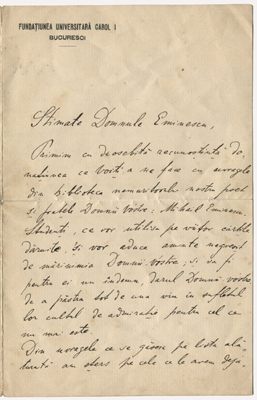 FUNDAȚIUNEA UNIVERSITARĂ CAROL I
BUCUREȘCI
Stimate Domnule Eminescu,
Primim cu deosebită recunoștință do-
națiunea ce voiți a ne face cu operele
din biblioteca nemuritorului nostru poet
și fratele Domniei Vostre, Mihail Eminescu.
Studenții, ce vor utiliza pe viitor cărțile
dăruite, își vor aduce aminte
de mărinimia Domniei Vostre, și va fi
pentru ei un îndemn, darul Domniei Vostre
de a păstra tot de una viu în sufletul
lor cultul de admirație pentru cel ce
nu mai este.
Din operele ce se găsesc pe lista ală-
turată am șters pe cele ce le avem deja,